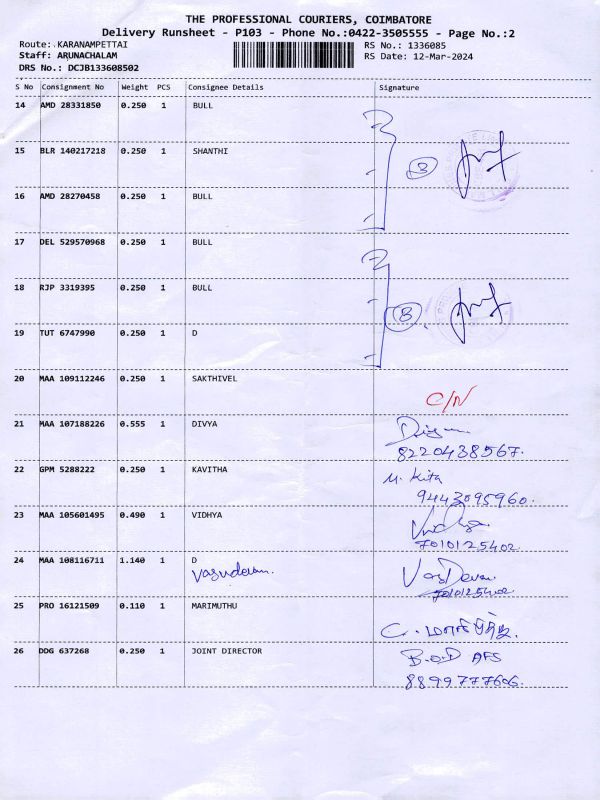 THE PROFESSIONAL COURIERS, COIMBATORE
Delivery Runsheet - P103 - Phone No.:0422-3505555 - Page No.:2
Route: KARANAMPETTAI
RS No.: 1336085
Staff: ARUNACHALAM
RS Date: 12-Mar-2024
DRS No.: DCJB133608502
S No Consignment No Weight PCS Consignee Details Signature
14 AMD 28331850 0.250 1 BULL
15 BLR 140217218 0.250 1 SHANTHI
16 AMD 28270458 0.250 1 BULL
17 DEL 529570968 0.250 1 BULL
18 RJP 3319395 0.250 1 BULL
19 TUT 6747990 0.250 1 D
20 MAA 109112246 0.250 1 SAKTHIVEL
C/N
21 MAA 107188226 0.555 1 DIVYA
8220438567.
22 GPM 5288222 0.250 1 KAVITHA
M. Kita
9443095960.
23 MAA 105601495 0.490 1 VIDHYA
Vidhya
7010125402
24 MAA 108116711 1.140 1 D
Vasudevan.
7010125402
25 PRO 16121509 0.110 1 MARIMUTHU
26 DDG 637268 0.250 1 JOINT DIRECTOR
B.O.D AFS
8899777606